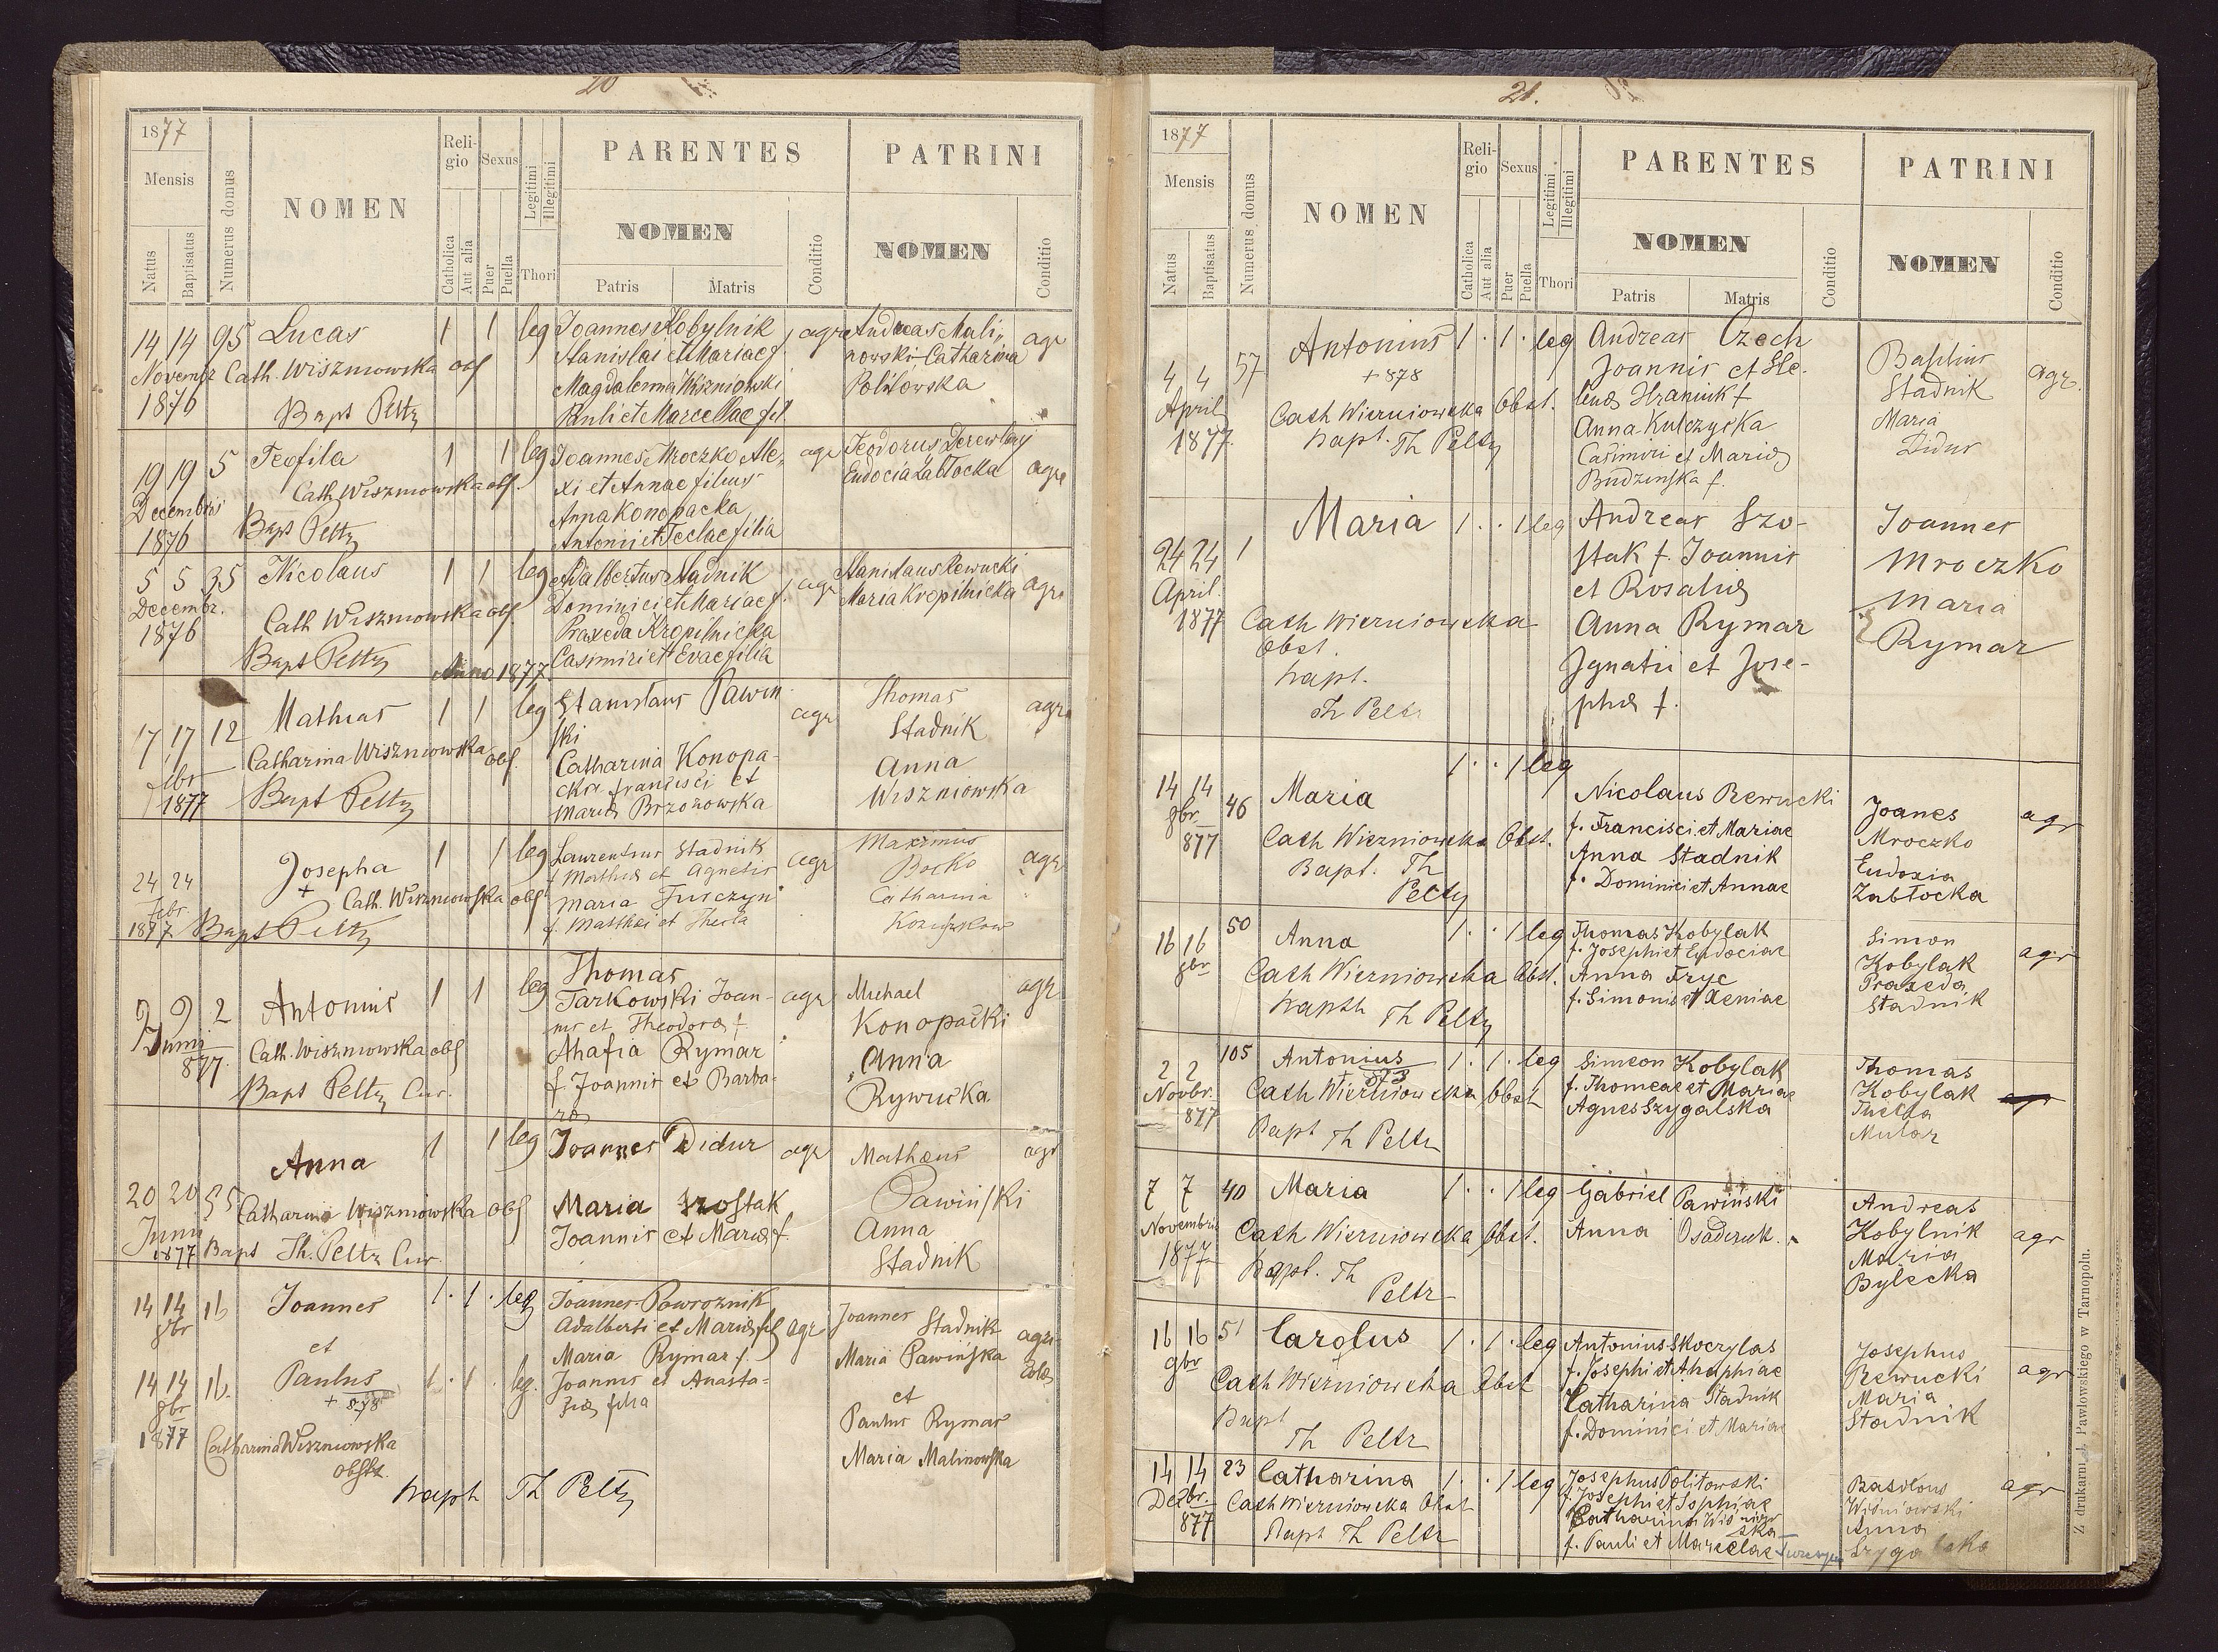 20
1877
Mensis
Natus
Baptisatus
Numerus domus
NOMEN
Reli-
gio
Catholica
Aut alia
Sexus
Puer
Puella
Legitimi
Illegitimi
Thori
PARENTES
NOMEN
Patris
Matris
Conditio
PATRINI
NOMEN
Conditio
14 14 95 Lucas 1 1 leg Joannes Kobylnik agr Andreas Mali- agr
Novembr Cath. Wiszniowska obs Stanislai et Mariae f. nowski Catharina
1876 Magdalenna Wizniowski Politowska
Bapt Peltz Pauli et Marcellae fil.
19 19 5 Teofila 1 1 leg Joannes Mroczko Ale- agr Teodorus Derewlany
Decembris Cath Wiszniowska obs. xi et Annae filius Eudocia Zabłocka agr
1876 Bapt Peltz Anna Konopacka
Antonii et Teclae filia
5 5 35 Nicolaus 1 1 leg Adalbertus Stadnik agr Stanislaus Rewucki
Decembr. Cath Wiszniowska obs Dominici et Mariae f. Maria Kropilnicka agr
1876 Praxeda Kropilnicka
Bapt Peltz Casimiri et Evae filia
Anno 1877
17 17 12 Mathias 1 1 leg Stanislaus Pawin- agr Thomas agr
ski Stadnik
Catharina Wiszniowska obs. Catharina Konopa- Anna
cka Francisci et Wiszniowska
1877 Bapt Peltz Maria Brzozowska
24 24 Josepha 1 1 leg Laurentius Stadnik agr Maximus agr
febr + f Mathia et Agnetis Bocko
Cath. Wiszniowska obs Maria Turczyn Catharina
1877 Bapt Peltz f. Matthei et Thecla
9 9 2 Antonius 1 1 leg Thomas
Junii Tarkowski Joan- agr Michael agr
877. nis et Theodora f. Konopacki
Cath. Wiszniowska obs Ahafia Rymar Anna
Bapt Peltz Cur. f. Joannis et Barba- Rywucka
ra
20 20 55 Anna 1 1 leg Joannes Didur agr Matheus agr
Junii Catharina Wiszniowska obs Maria Szostak Pawinski
1877 Bapt Th. Peltz Cur. Joannis et Maria f. Anna
Stadnik
14 14 16 Joannes 1 . 1 . leg Joannes Powroznik agr Joannes Stadnik agr
8br et Adalberti et Maria fil Maria Pawinska
14 14 16. Paulus 1 . 1 . leg. Maria Rymar f. et
8br + 878 Joannis et Anasta- Paulus Rymar
1877 Catharina Wiszniowska zia filia Maria Malinowska
obstz.
bapt Th Peltz
21.
1877
Mensis
Natus
Baptisatus
Numerus domus
NOMEN
Reli-
gio
Catholica
Aut alia
Sexus
Puer
Puella
Legitimi
Illegitimi
Thori
PARENTES
NOMEN
Patris
Matris
Conditio
PATRINI
NOMEN
Conditio
4 4 57 Antonius 1 . 1 . leg Andreas Czech Basilius agr.
April + 878 Joannis et He- Stadnik
1877. Cath Wierniowska Obst. lena Hraniuk f Maria
bapt. Th Peltz Anna Kulczycka Didur
Casimiri et Maria
Budzinska f.
24 24 1 Maria 1 . . 1 leg Andreas Szo- Joannes
April. stak f. Joannis Mroczko
1877 Cath Wierniowska et Rosalia Maria
Obst. Anna Rymar Rymar
bapt. Ignatii et Jose-
Th Peltz pha f.
14 14 46 Maria 1 . . 1 leg Nicolaus Rewucki Joanes agr
8br f. Francisci et Mariae Mroczko
877 Cath Wierniowska Obst. Anna Stadnik Eudoxia
Bapt. Th f. Dominici et Annae Zabłocka
Peltz
16 16 50 Anna 1 . . 1 leg Thomas Kobylak Simon agr
8br f. Josephi et Eudociae Kobylak
Cath Wierniowska Obst. Anna Fryc Praxeda
bapth Th Peltz f. Simonis et Xeniae Stadnik
2 2 105 Antonius 1 . 1 . leg Simeon Kobylak Thomas
Novbr. + 878 f. Thomeae et Mariae Kobylak agr
877 Cath Wierniowska Obst Agnes Szygalska Thekla
Bapt Th Peltz Mular
7 7 40 Maria 1 . . 1 leg Gabriel Pawiński Andreas
Novembris Cath Wierniowska Obst. Anna Osadczuk. Kobylnik agr
1877 Bapt. Th Maria
Peltz Bylecka
16 16 51 Carolus 1 . 1 . leg Antonius Skoczylas Josephus
9br f. Josephi et Ahaphiae Rewucki agr
Cath Wierniowska Obst Catharina Stadnik Maria
Bapt f. Dominici et Mariae Stadnik
Th Peltz
14 14 23 Catharina 1 . . 1 leg Josephus Politowski Basilous agr
Dezbr. f. Josephi et Sophiae Wiśniowski
Cath Wierniowska Obst Catharina Wisniow- Anna
877 Bapt Th Peltz ska Szygalska
f. Pauli et Marcelae Turczyn
Z drukarni J. Pawłowskiego w Tarnopolu.